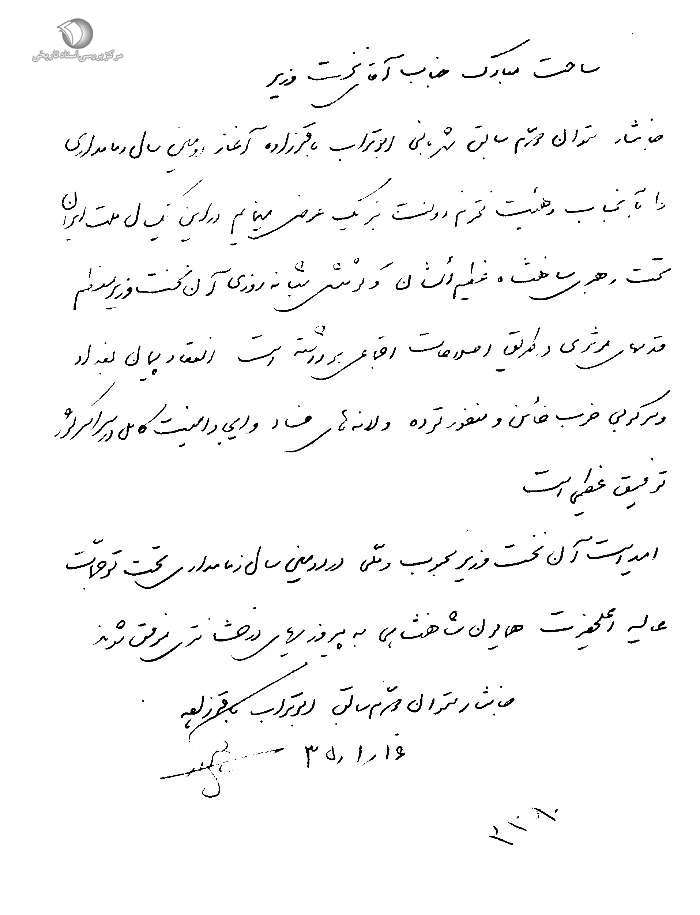 مرکز بررسی اسناد تاریخی
ساحت مبارک جناب آقای نخست وزیر
جانثار ستوان دوم سابق شهربانی ابوتراب باقرزاده آغاز دومین سال زمامداری
را بآنجناب و هیئت محترم دولت تبریک عرض مینمایم در این یکسال ملت ایران
تحت رهبری شاهنشاه عظیم الشان و کوشش شبانه روزی آن نخست وزیر معظم
قدمهای موثری در طریق اصلاحات اجتماعی برداشته است انعقاد پیمان بغداد
و سرکوبی حزب خائن و منفور توده و لانه های فساد و ایجاد امنیت کامل در سراسر کشور
توفیق عظیمی است
امید است آن نخست وزیر محبوب و ملی در دومین سال زمامداری تحت توجهات
عالیه اعلیحضرت همایون شاهنشاهی به پیروزیهای درخشانتری موفق شوند
جانثار ستوان دوم سابق ابوتراب باقرزاده
۳۵٫۱٫۱۶